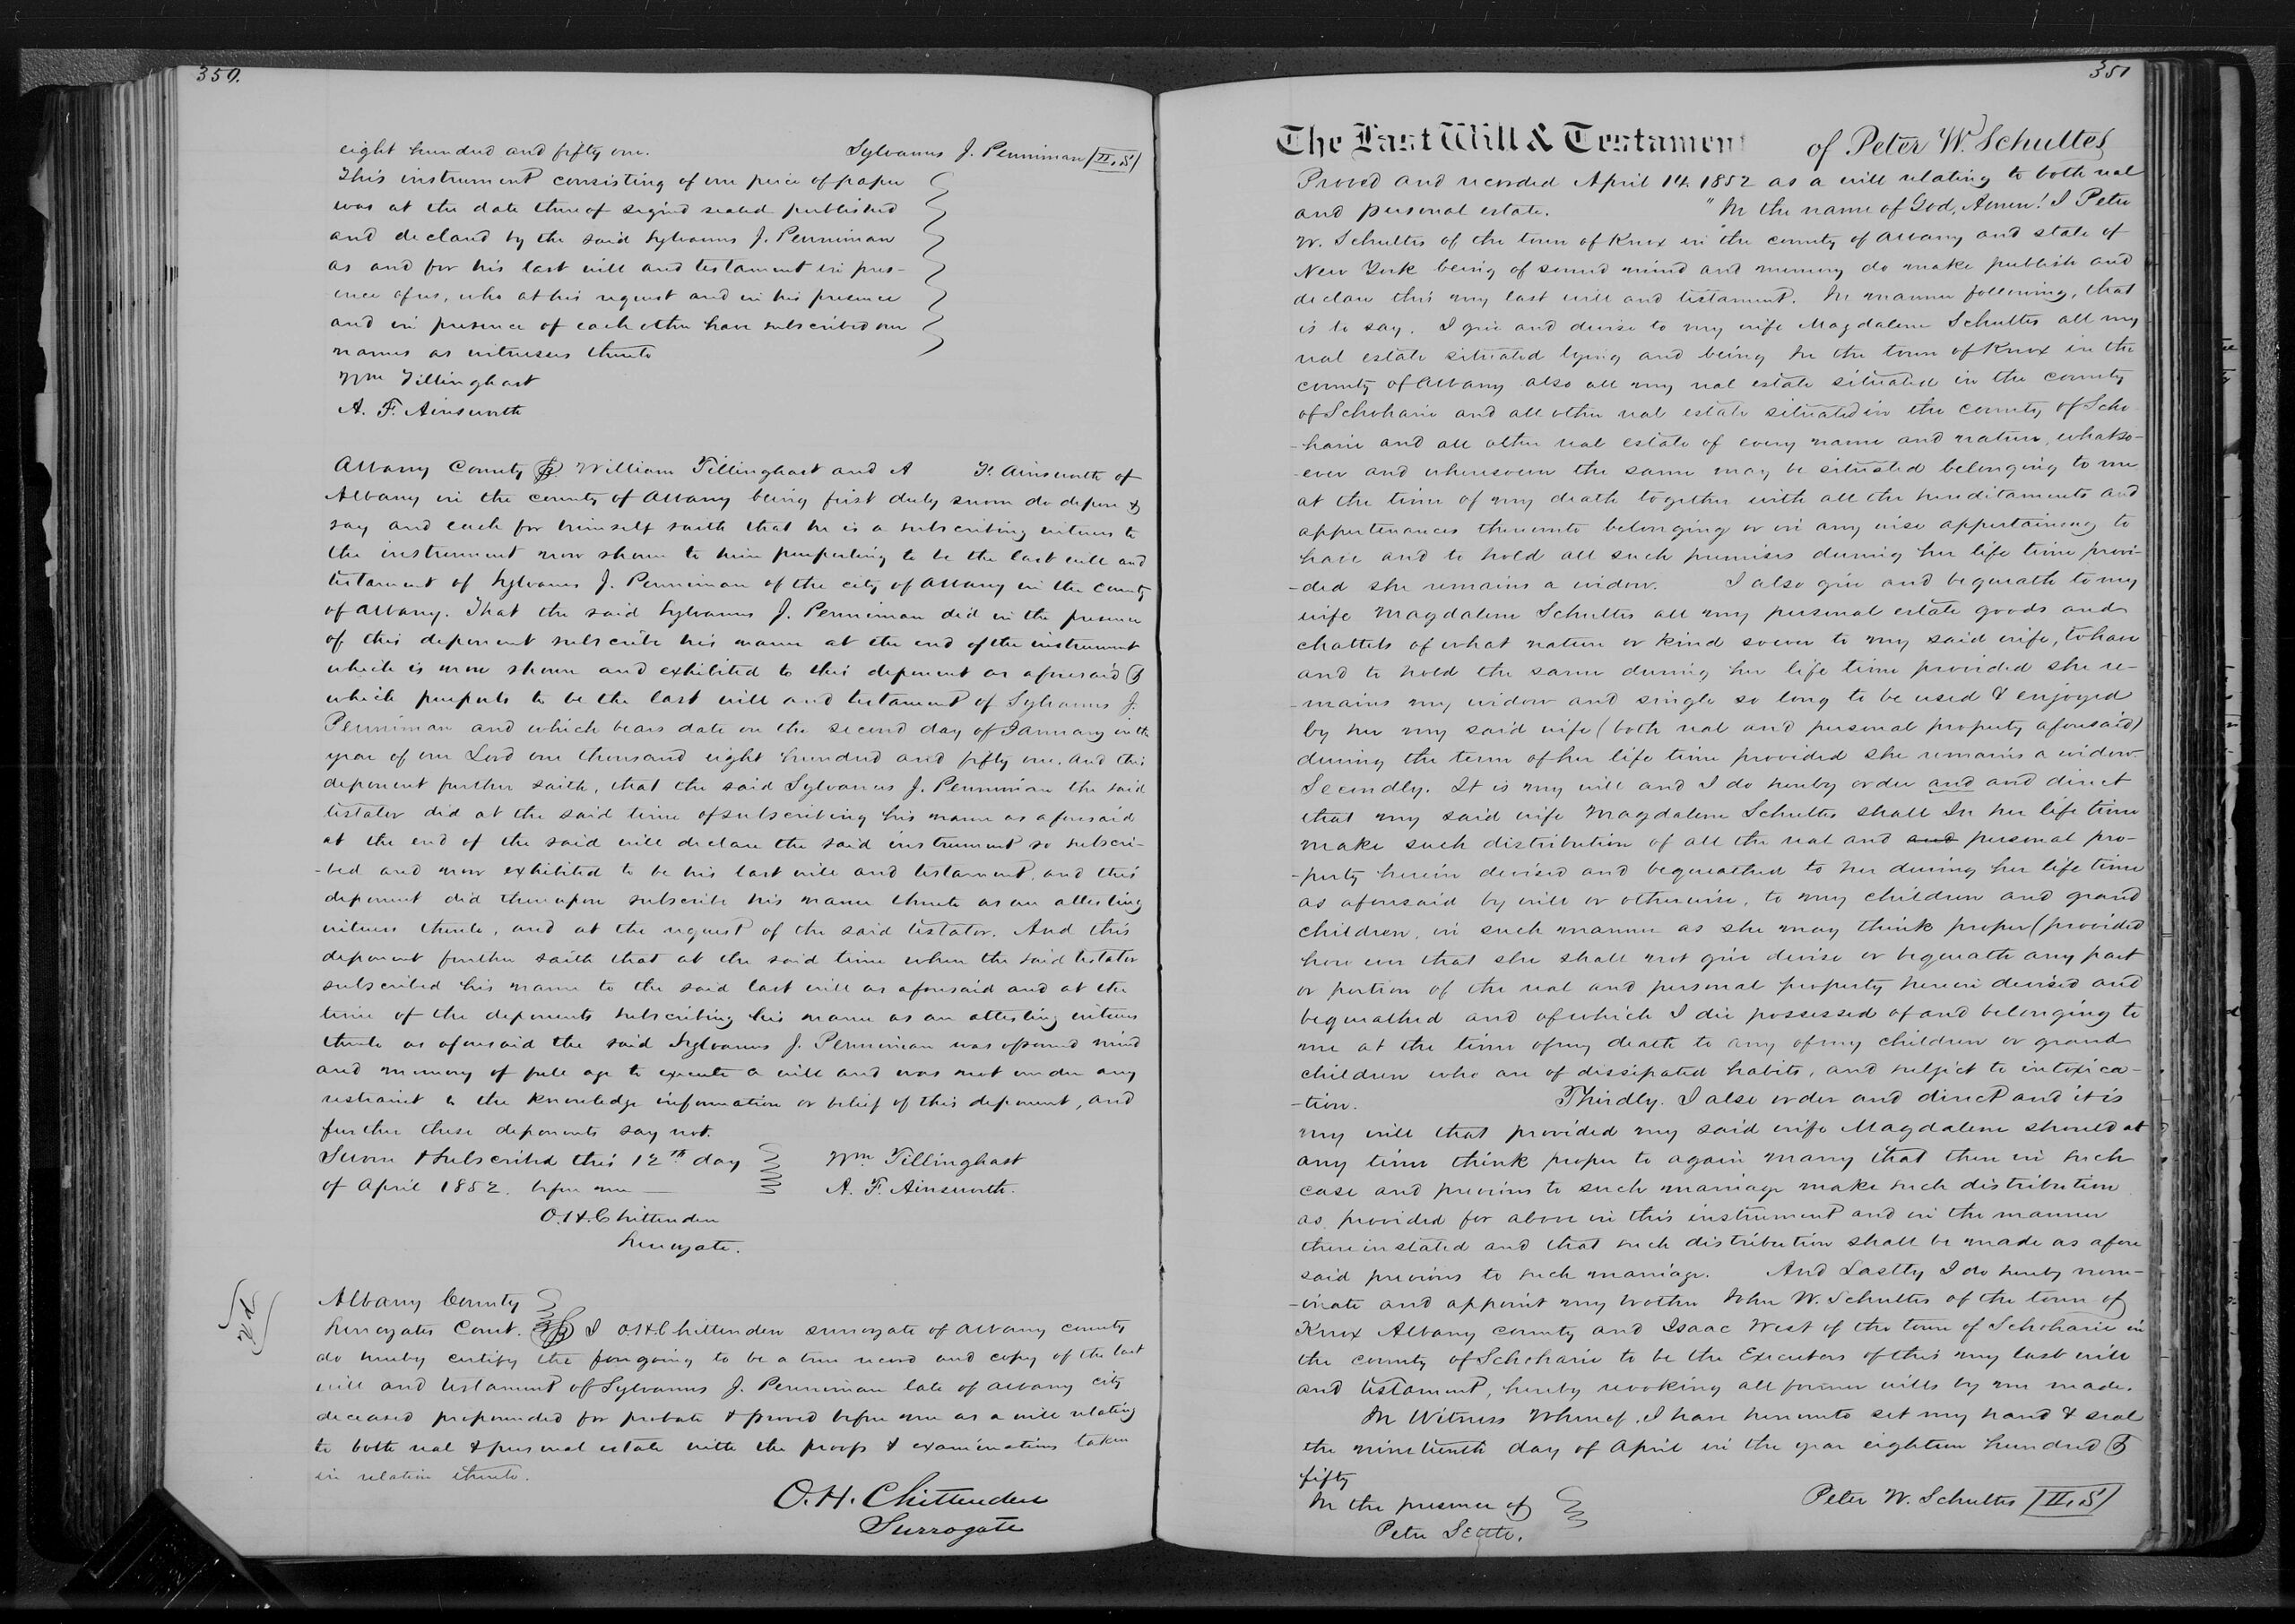 350.
eight hundred and fifty one. Sylvanus J. Penniman [II.S]
This instrument consisting of one peice of paper
was at the date thereof signed sealed published
and declared by the said Sylvanus J. Penniman
as and for his last will and testament in pres-
ence of us, who at his request and in his presence
and in presence of each other have subscribed our
names as witnesses thereto
Wm Tillinghast
A. F. Ainsworth
Albany County SS. William Tillinghast and A F. Ainsworth of
Albany in the county of Albany being first duly sworn do depose &
say and each for himself saith that he is a subscribing witness to
the instrument now shown to him purporting to be the last will and
testament of Sylvanus J. Penniman of the city of Albany in the county
of Albany. That the said Sylvanus J. Penniman did in the presence
of this deponent subscribe his name at the end of the instrument
which is now shown and exhibited to this deponent as aforesaid &
which purports to be the last will and testament of Sylvanus J.
Penniman and which bears date on the second day of January in the
year of our Lord one thousand eight hundred and fifty one. And this
deponent further saith, that the said Sylvanus J. Penniman the said
testator did at the said time of subscribing his name as aforesaid
at the end of the said will declare the said instrument so subscri-
-bed and now exhibited to be his last will and testament, and this
deponent did thereupon subscribe his name thereto as an attesting
witness thereto, and at the request of the said testator. And this
deponent further saith that at the said time when the said testator
subscribed his name to the said last will as aforesaid and at the
time of the deponents subscribing his name as an attesting witness
thereto as aforesaid the said Sylvanus J. Penniman was of sound mind
and memory of full age to execute a will and was not under any
restraint to the knowledge information or belief of this deponent, and
further these deponents say not.
Sworn & subscribed this 12th day Wm Tillinghast
of April 1852. before me — A. F. Ainsworth.
O. H. Chittenden
Surrogate.
Albany County
Surrogates Court. SS I O. H. Chittenden surrogate of Albany county
do hereby certify the foregoing to be a true record and copy of the last
will and testament of Sylvanus J. Penniman late of Albany city
deceased propounded for probate & proved before me as a will relating
to both real & personal estate with the proofs & examinations taken
in relation thereto.
O. H. Chittenden
Surrogate
351
The Last Will & Testament of Peter W. Schultes
Proved and recorded April 14. 1852 as a will relating to both real
and personal estate. "In the name of God, Amen! I Peter
W. Schultes of the town of Knox in the county of Albany and state of
New York being of sound mind and memory do make publish and
declare this my last will and testament. In manner following, that
is to say. I give and devise to my wife Magdalene Schultes all my
real estate situated lying and being In the town of Knox in the
county of Albany also all my real estate situated in the county
of Schoharie and all other real estate situated in the county of Scho
-harie and all other real estate of every name and nature, whatso-
-ever and wheresoever the same may be situated belonging to me
at the time of my death together with all the hereditaments and
appurtenances thereunto belonging or in any wise appertaining to
have and to hold all such premises during her life time provi-
-ded she remains a widow. I also give and bequeath to my
wife Magdalene Schultes all my personal estate goods and
chattels of what nature or kind soever to my said wife, to have
and to hold the same during her life time provided she re-
-mains my widow and single so long to be used & enjoyed
by her my said wife (both real and personal property aforesaid)
during the term of her life time provided she remains a widow.
Secondly. It is my will and I do hereby order and and direct
that my said wife Magdalene Schultes shall In her life time
make such distribution of all the real and and personal pro-
-perty herein devised and bequeathed to her during her life time
as aforesaid by will or otherwise, to my children and grand
children, in such manner as she may think proper (provided
how ever that she shall not give devise or bequeath any part
or portion of the real and personal property herein devised and
bequeathed and of which I die possessed of and belonging to
me at the time of my death to any of my children or grand
children who are of dissipated habits, and subject to intoxica-
-tion. Thirdly. I also order and direct and it is
my will that provided my said wife Magdalene should at
any time think proper to again marry that then in such
case and previous to such marriage make such distribution
as provided for above in this instrument and in the manner
therein stated and that such distribution shall be made as afore
said previous to such marriage. And Lastly I do hereby nom-
-inate and appoint my brother John W. Schultes of the town of
Knox Albany county and Isaac West of the town of Schoharie in
the county of Schoharie to be the Executors of this my last will
and testament, hereby revoking all former wills by me made.
In Witness Whereof, I have hereunto set my hand & seal
the nineteenth day of April in the year eighteen hundred &
fifty
In the presence of Peter W. Schultes [II.S]
Peter